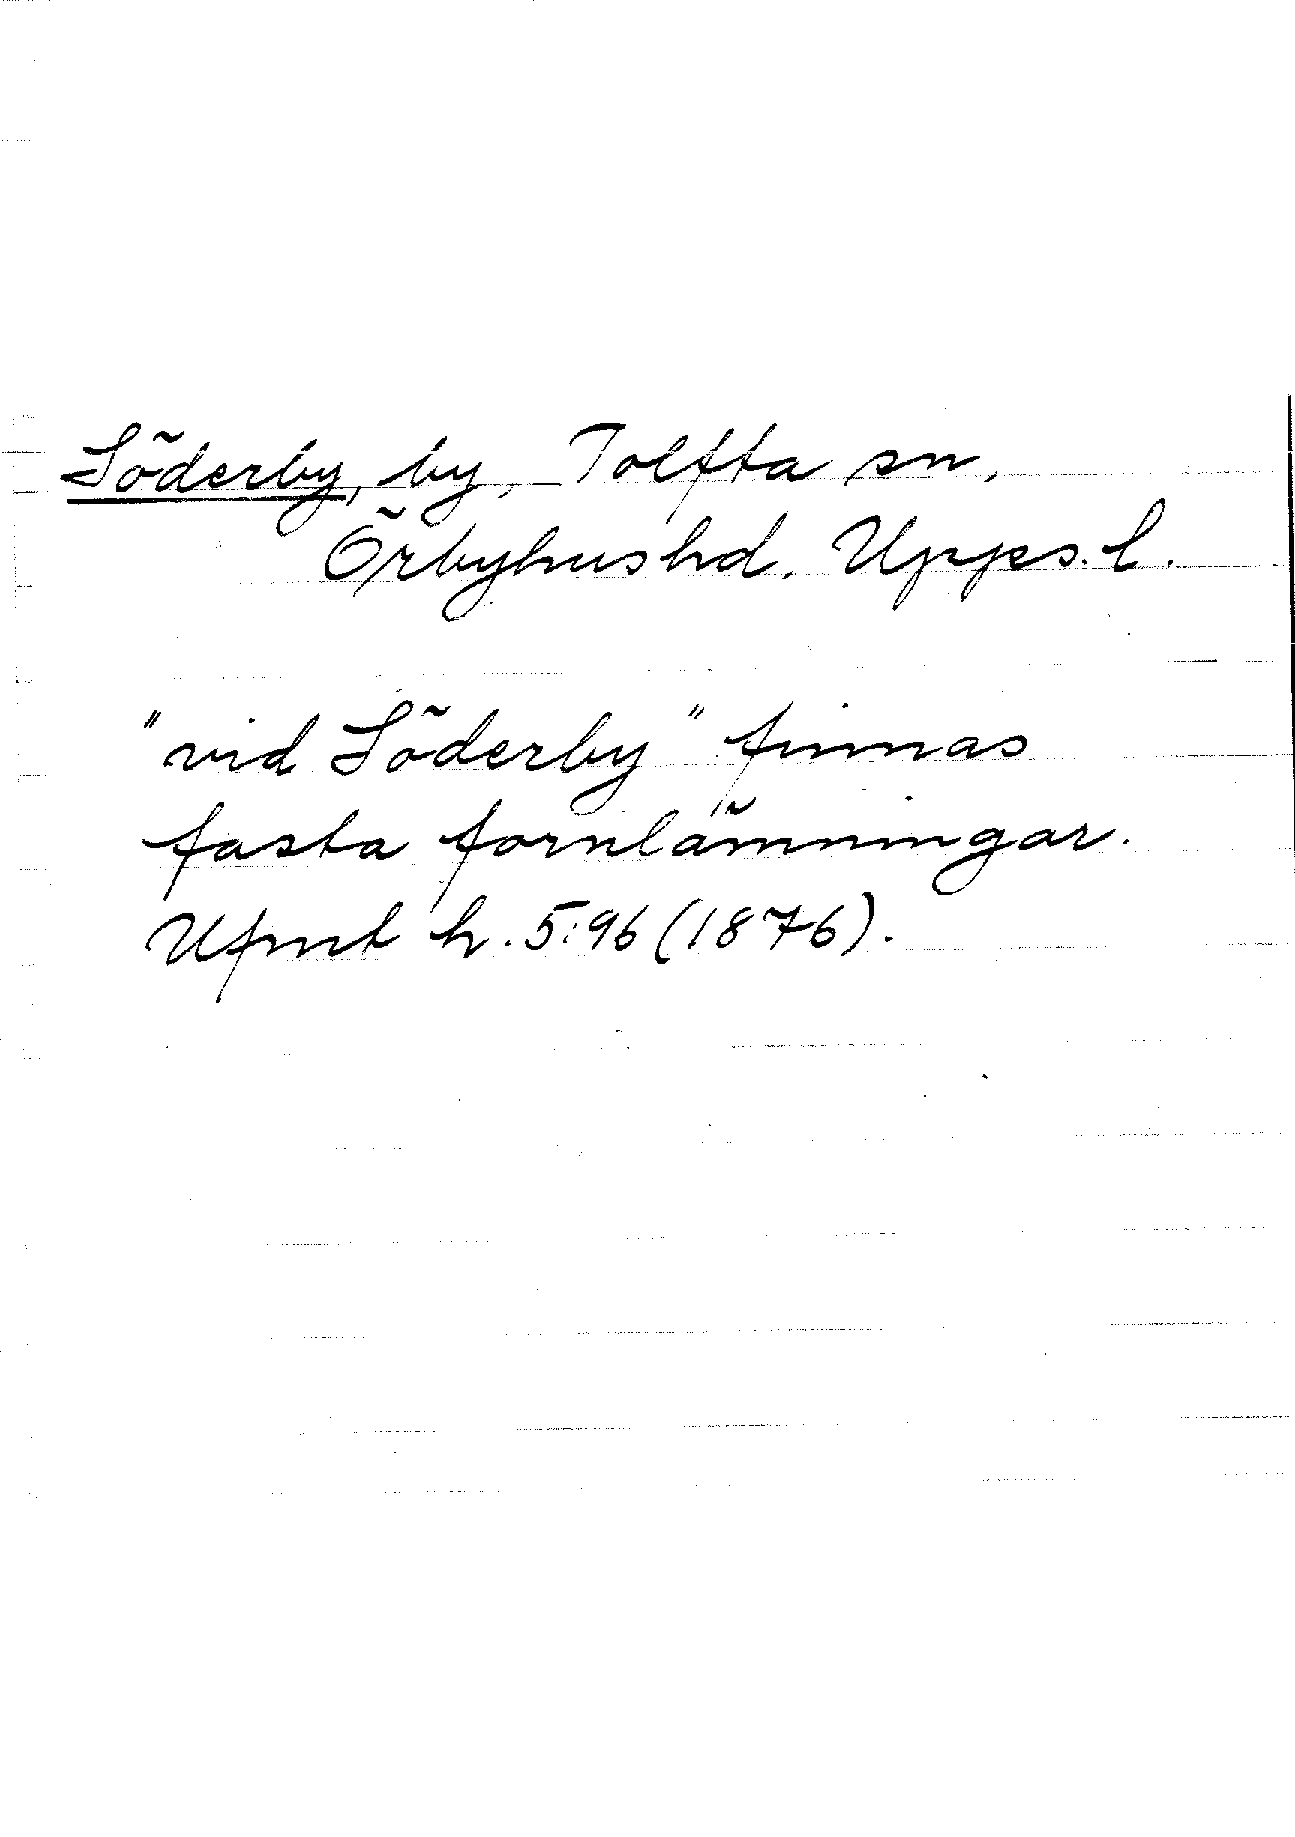 Söderby, by, Tolfta sn,
Örbyhus hd. Upps. l.
"vid Söderby" finnas
fasta fornlämningar.
Ufmt h. 5:96 (1876).